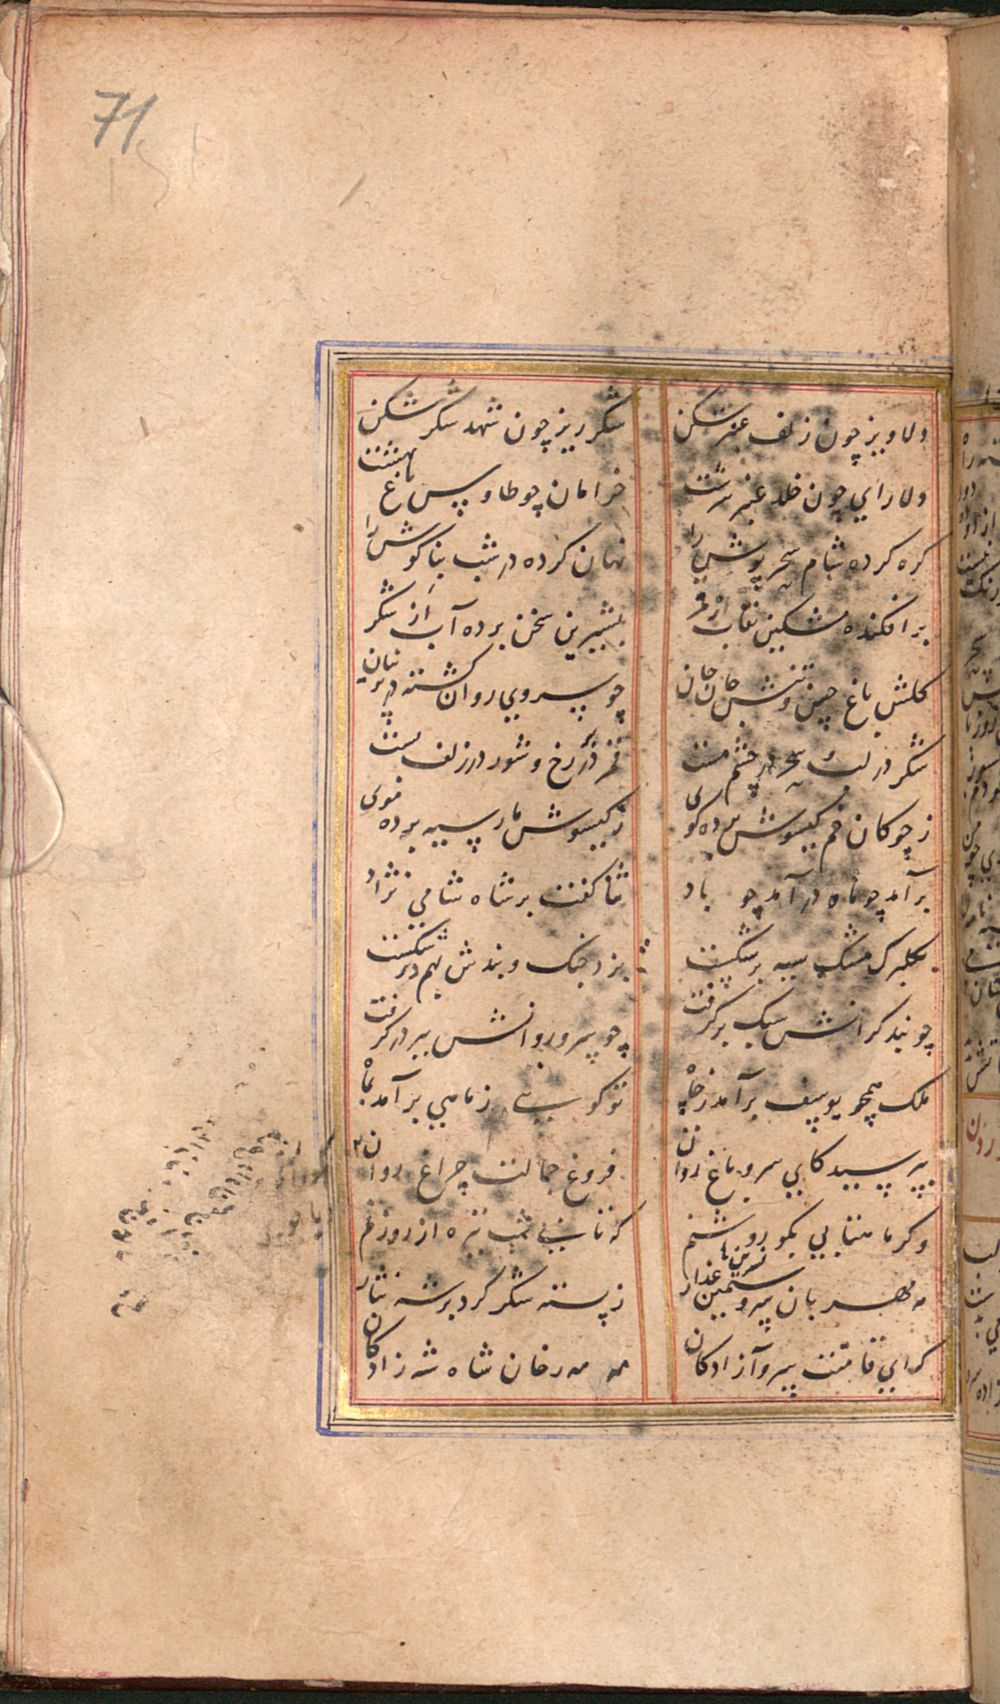 71
دلاویز چون زلف عنبر شکن شکر ریز چون شهد شکر شکن
دلارای چون خلد عنبر سرشت خرامان چو طاوس باغ بهشت
کره کرده شام سحر پوش را نهان کرده در شب بناکوش را
برافکنده مشکین نقاب از قمر بشیرین سخن برده آب از شکر
کلش باغ چین و تنش جان جان چو سروی روان کشته در پرنیان
شکر در لب و سحر در چشم مست قمر در رخ و شور در زلف پست
ز چوکان خم کیسوش برده کوی ز کیسوش مار سیه برده موی
برآمد چو ماه درآمد چو باد ثنا کفت بر شاه شامی نژاد
بکلبرک مشک سیه برشکست بزد چنک و بندش بهم درشکست
چو بند کرانش سبک برکرفت چو سرو روانش ببر درکرفت
ملک همچو یوسف برآمد ز چاه تو کویی ز ماهی برآمد بماه
بپرسید کای سرو باغ روان فروغ جمالت چراغ روان
وکر ماهتابی بکو روشنم که تابنی شب تیره از روزنم
مه مهربان سرو سیمین عذار ز پسته شکر کرد بر شه نثار
نسرین ها
که ای قامتت سرو آزادکان مه مه رخان شاه شه زادکان